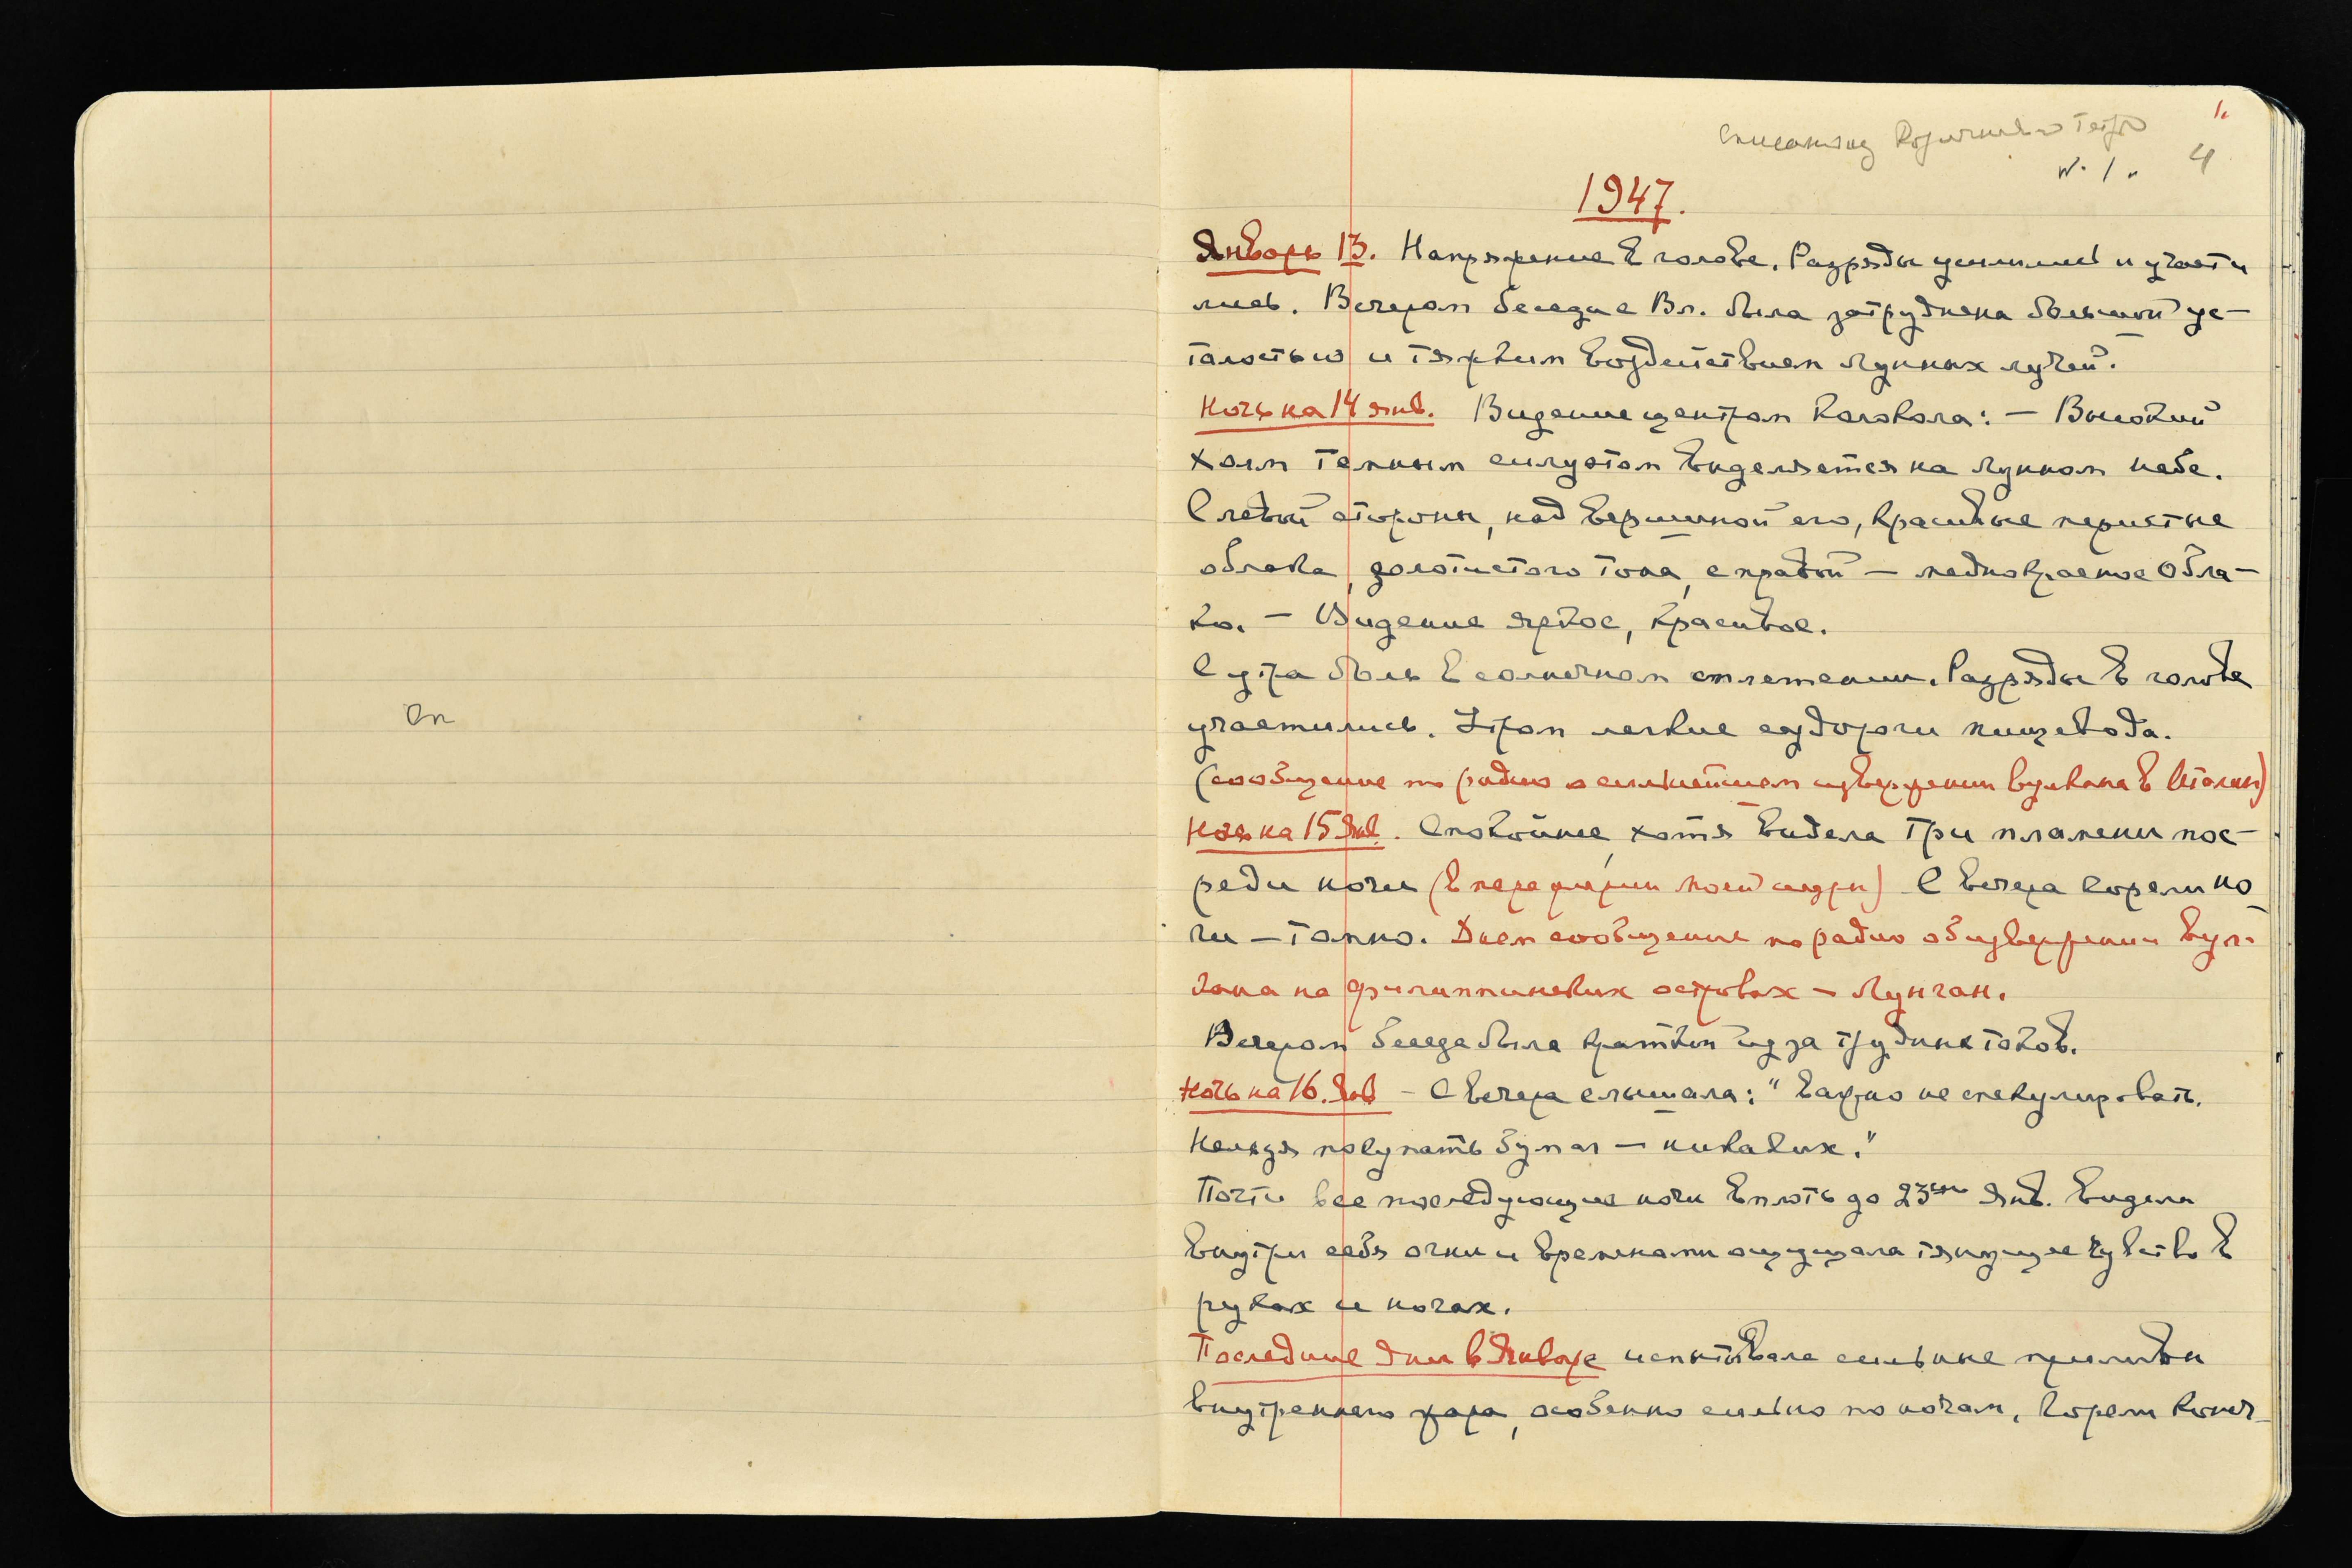 Сп
1.
Списан из Коричневой Тетр
N. 1. 4
1947.
Январь 13. Напряжение в голове. Разряды усилились и участи
лись. Вечером беседа с Вл. была затруднена большой ус-
талостью и тяжким воздействием лунных лучей.
Ночь на 14 янв. Видение центром колокола: — Высокий
холм темным силуэтом выделяется на лунном небе.
С левой стороны, над вершиной его, красивые перистые
облака, золотистого тона, с правой — меднокрасное обла-
ко. — Видение яркое, красивое.
С утра боль в солнечном сплетении. Разряды в голове
участились. Утром легкие судороги пищевода.
(сообщение по радио о сильнейшем извержении вулкана в Италии)
Ночь на 15 Янв. Спокойнее, хотя видела три пламени пос-
реди ночи (в периферии моей ауры) С вечера горели но
ги — томно. Днем сообщение по радио об извержении вул-
кана на Филиппинских островах — Лунган.
Вечером беседа была краткой из за трудных токов.
Ночь на 16. Янв — С вечера слышала: "Важно не спекулировать.
Нельзя покупать бумаг — никаких."
Почти все последующие ночи вплоть до 23ью Янв. видела
внутри себя огни и временами ощущала тянущее чувство в
руках и ногах.
Последние дни в Январе испытывала сильные приливы
внутреннего жара, особенно сильно по ночам, горели конеч-